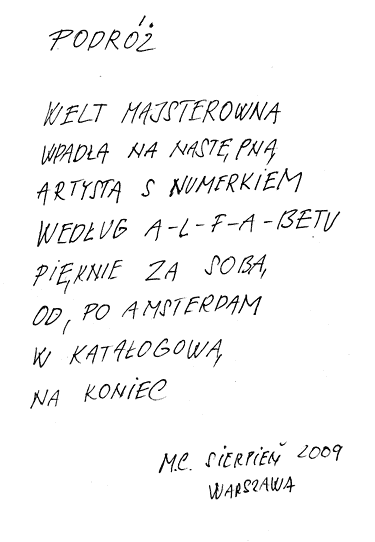 PODRÓŻ
WELT MAJSTEROWNA
WPADŁA NA NASTĘPNĄ
ARTYSTA S NUMERKIEM
WEDŁUG A-L-F-A-BETU
PIĘKNIE ZA SOBĄ
OD, PO AMSTERDAM
W KATAŁOGOWĄ
NA KONIEC
M.C. SIERPIEŃ 2009
WARSZAWA